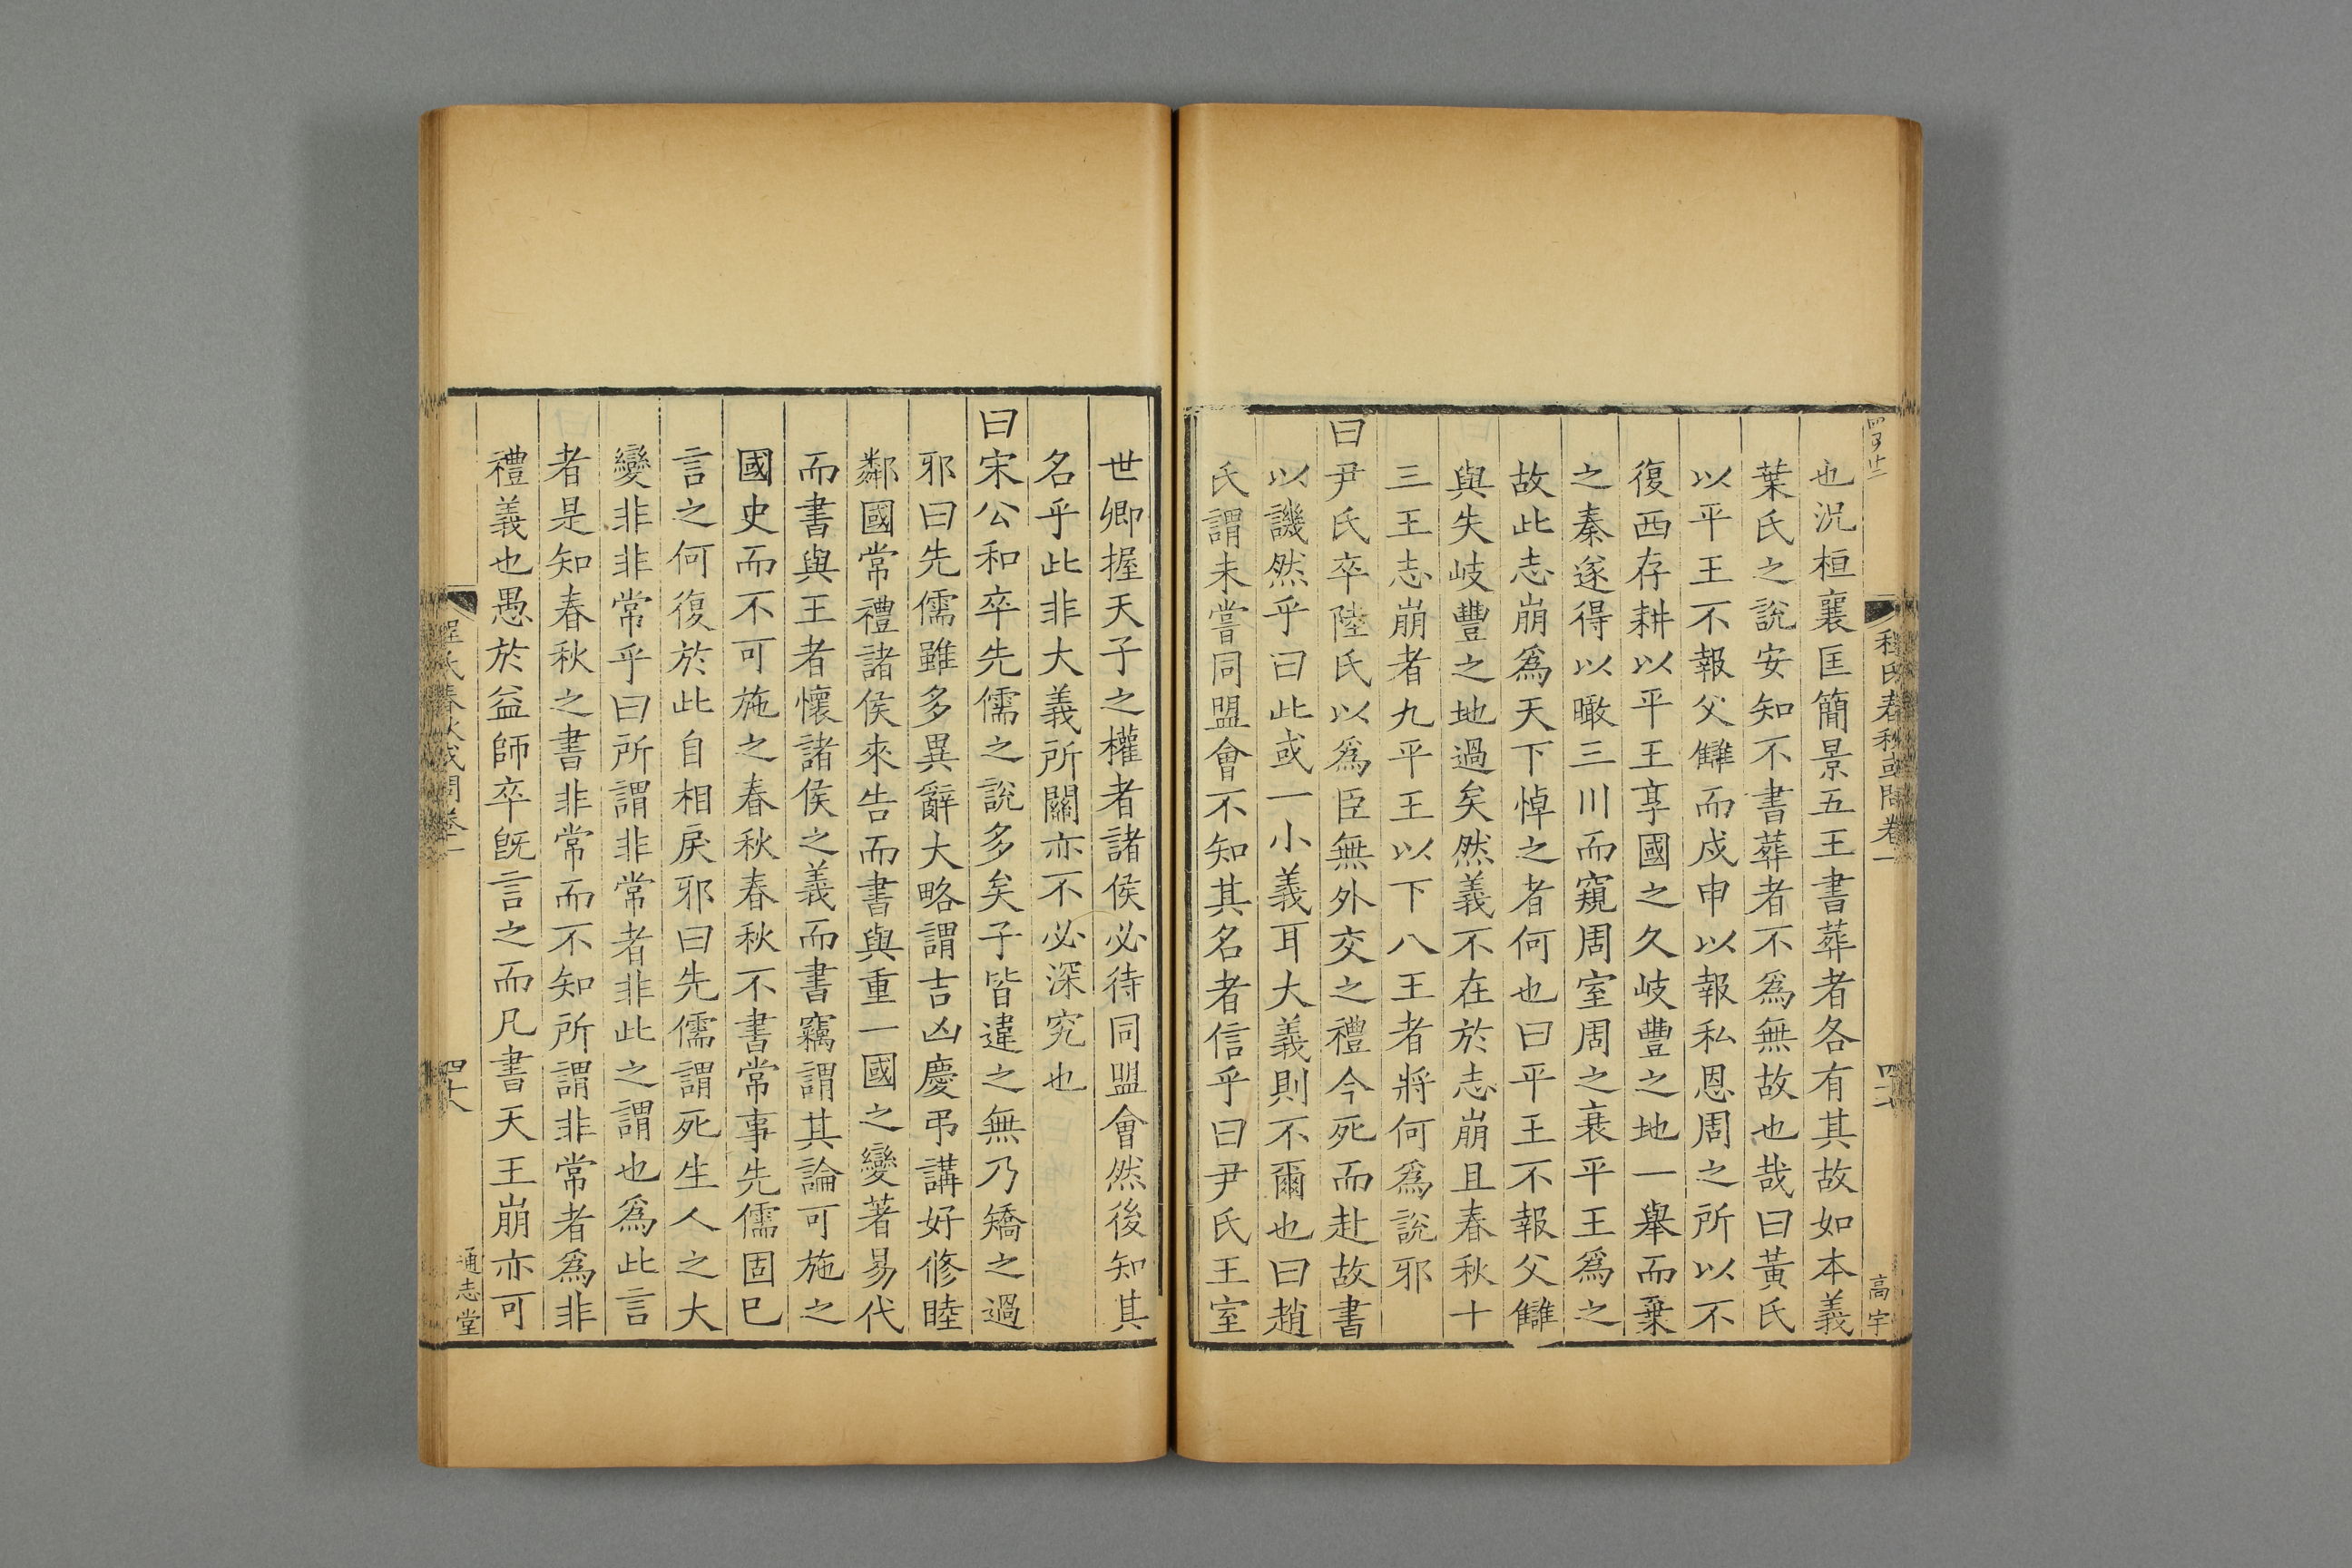 也況桓襄匡簡景五王書葬者各有其故如本義
葉氏之說安知不書葬者不爲無故也哉曰黃氏
以平王不報父讎而戍申以報私恩周之所以不
復西存耕以平王享國之久岐豐之地一舉而棄
之秦遂得以瞰三川而窺周室周之衰平王爲之
故此志崩爲天下悼之者何也曰平王不報父讎
與失岐豐之地過矣然義不在於志崩且春秋十
三王志崩者九平王以下八王者將何爲說邪
曰尹氏卒陸氏以爲臣無外交之禮今死而赴故書
以譏然乎曰此或一小義耳大義則不爾也曰趙
氏謂未嘗同盟會不知其名者信乎曰尹氏王室
世卿握天子之權者諸侯必待同盟會然後知其
名乎此非大義所關亦不必深究也
曰宋公和卒先儒之說多矣子皆違之無乃矯之過
邪曰先儒雖多異辭大略謂吉凶慶弔講好修睦
鄰國常禮諸侯來告而書與重一國之變著易代
而書與王者懷諸侯之義而書竊謂其論可施之
國史而不可施之春秋春秋不書常事先儒固已
言之何復於此自相戾邪曰先儒謂死生人之大
變非非常乎曰所謂非常者非此之謂也爲此言
者是知春秋之書非常而不知所謂非常者爲非
禮義也愚於益師卒旣言之而凡書天王崩亦可
程氏春秋或問卷一
高宇
程氏春秋或問卷一
四十八
通志堂